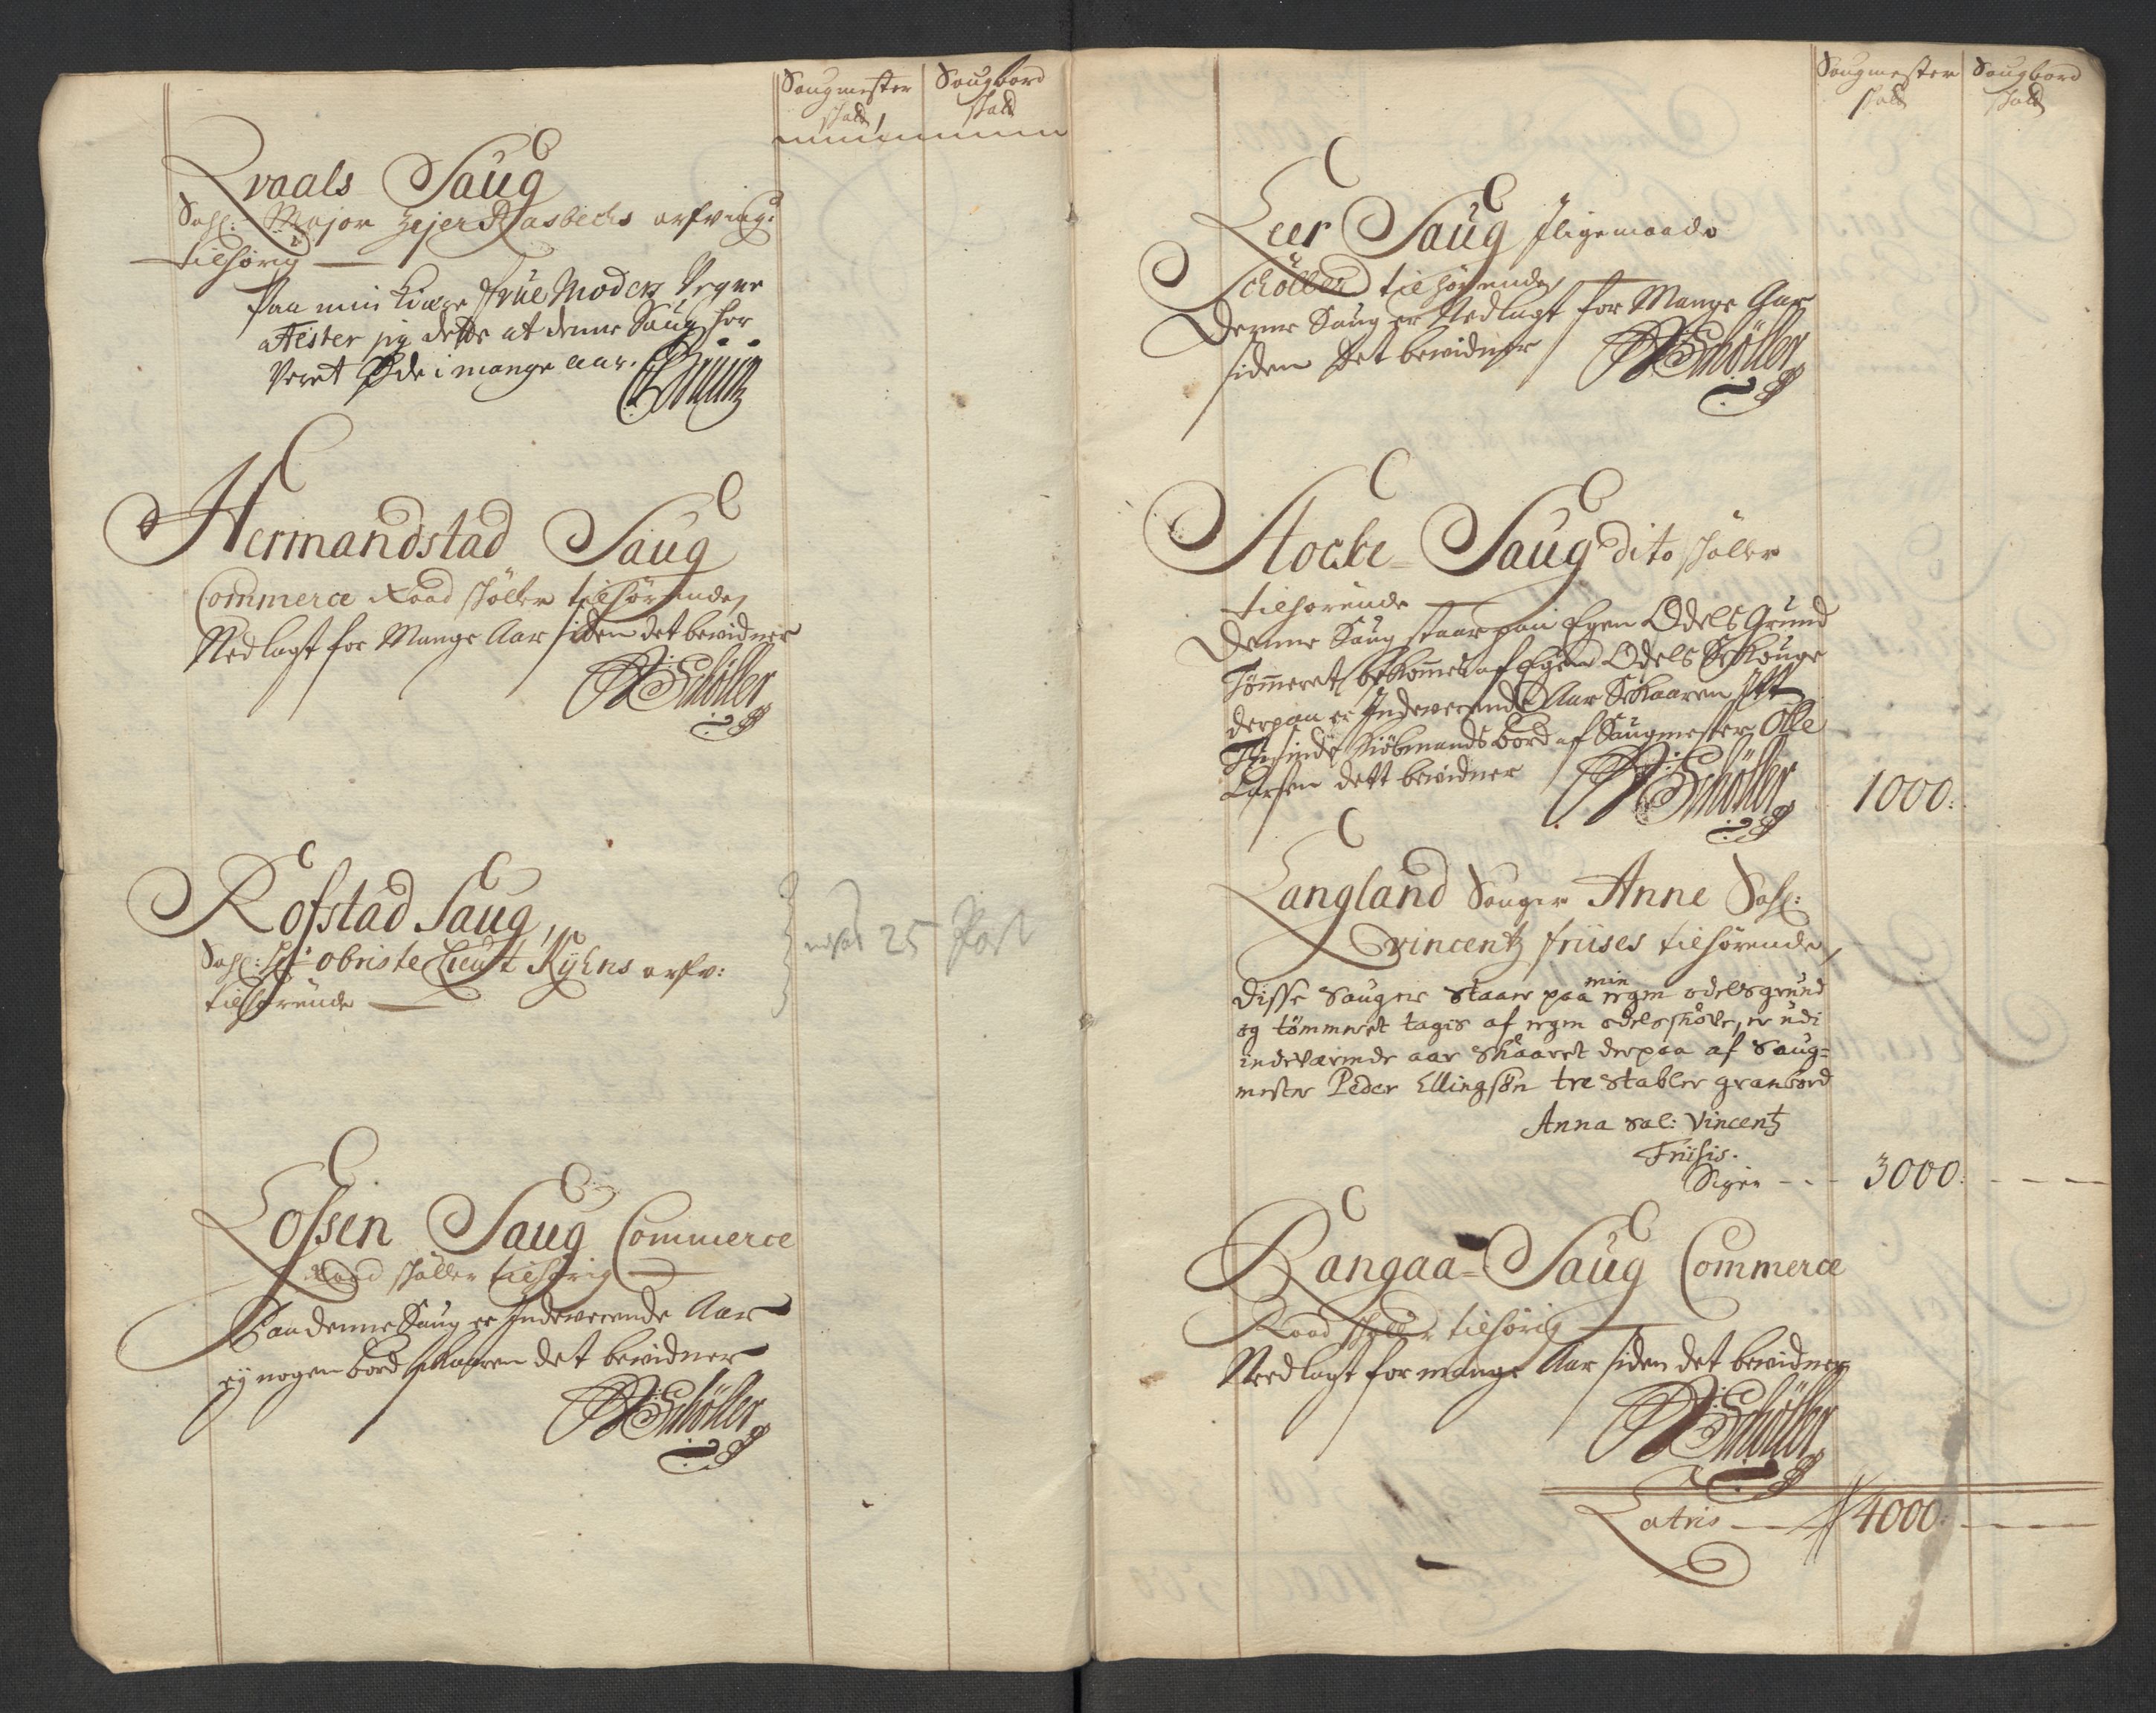 Saugmester Saugbord
skatt, skatt
Qvaals Saug
Sahl: Major Hejer Rasbechs arfving:
tilhörig
Paa min Kiære frue Moders Vegne
atester jeg dette at denne Saug har
Veret Øde i mange aar.
Hermandstad Saug
Commerce Raad Schöller tilhørende,
Nedlagt for Mange Aar siden det bewidner
Schöller
Rofstad Saug,
Sahl: Hr: obriste Lieut Kyhns arfv:
tilhørende
25 Post
Lossen Saug Commerce
Raad Schöller tilhørig
Paa denne Saug er Indewerende Aar
ej nogen bord skaaren det bewidner
Schöller
Saugmester Saugbord
skatt skatt
Leer Saug Iligemaade
Schöller tilhørende,
Denne Saug er Nedlagt for Mange Aar
siden Det bewidner
Schöller
Stocke-Saug dito Schöller
tilhørende
Denne Saug staar paa Egen Odels Grund
Tømmeret bekommes af Egen Odels Skouge
derpaa er Indewerende Aar Skaaren Itt
Tusinde Kiöbmands bord af Saugmester Olle
Larsen dett bewidner
Schöller 1000:
Langland Sauger Anne Sahl:
Vincentz friises tilhørende,
disse Sauger staar paa min egen odels grund
og tömmeret tagis af egen odels skove, er udi
indeværende aar skaaret derpaa af Saug-
mester Peder Ellingsøn tre stabler granbord
Anna Sal: Vincentz
Friisis.
3000:
Rangaa-Saug Commerce
Raad Schöller tilhörig
Nedlagt for mange Aar siden det bewidner
Schöller
Latris 4000: